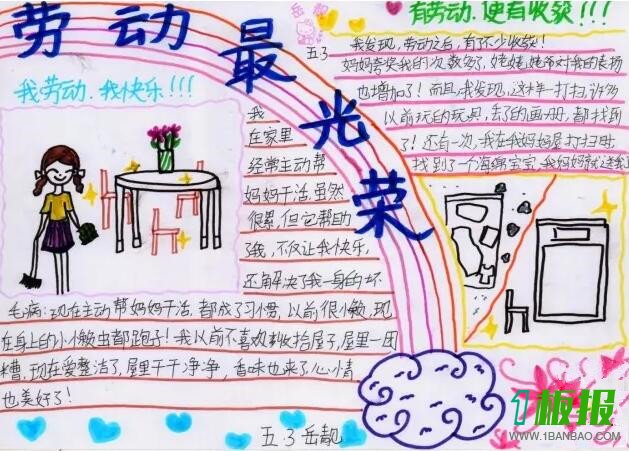 劳动最光荣
我劳动.我快乐!!!
我
在家里
经常主动帮
妈妈干活.虽然
很累,但它帮助
了我,不仅让我快乐,
还解决了我一身的坏
毛病:现在主动帮妈妈干活.都成了习惯,以前很小懒,现
在身上的小懒虫都跑了!我以前不喜欢收拾屋子,屋里一团
糟,现在爱整洁了,屋里干干净净,香味也来了.心情
也美好了!
五.3岳靓
岳靓
五.3
有劳动.便有收获!!!
我发现,劳动之后,有不少收获!
妈妈夸奖我的次数多了,姥姥,姥爷对我的表扬
也增加了!而且,我发现,这样一打扫,许多
以前玩的玩具,丢了的画册,都找到
了!还有一次,我在我妈妈屋打扫时
找到了一个海绵宝宝,我妈妈就送
1板报
WWW.1BANBAO.COM